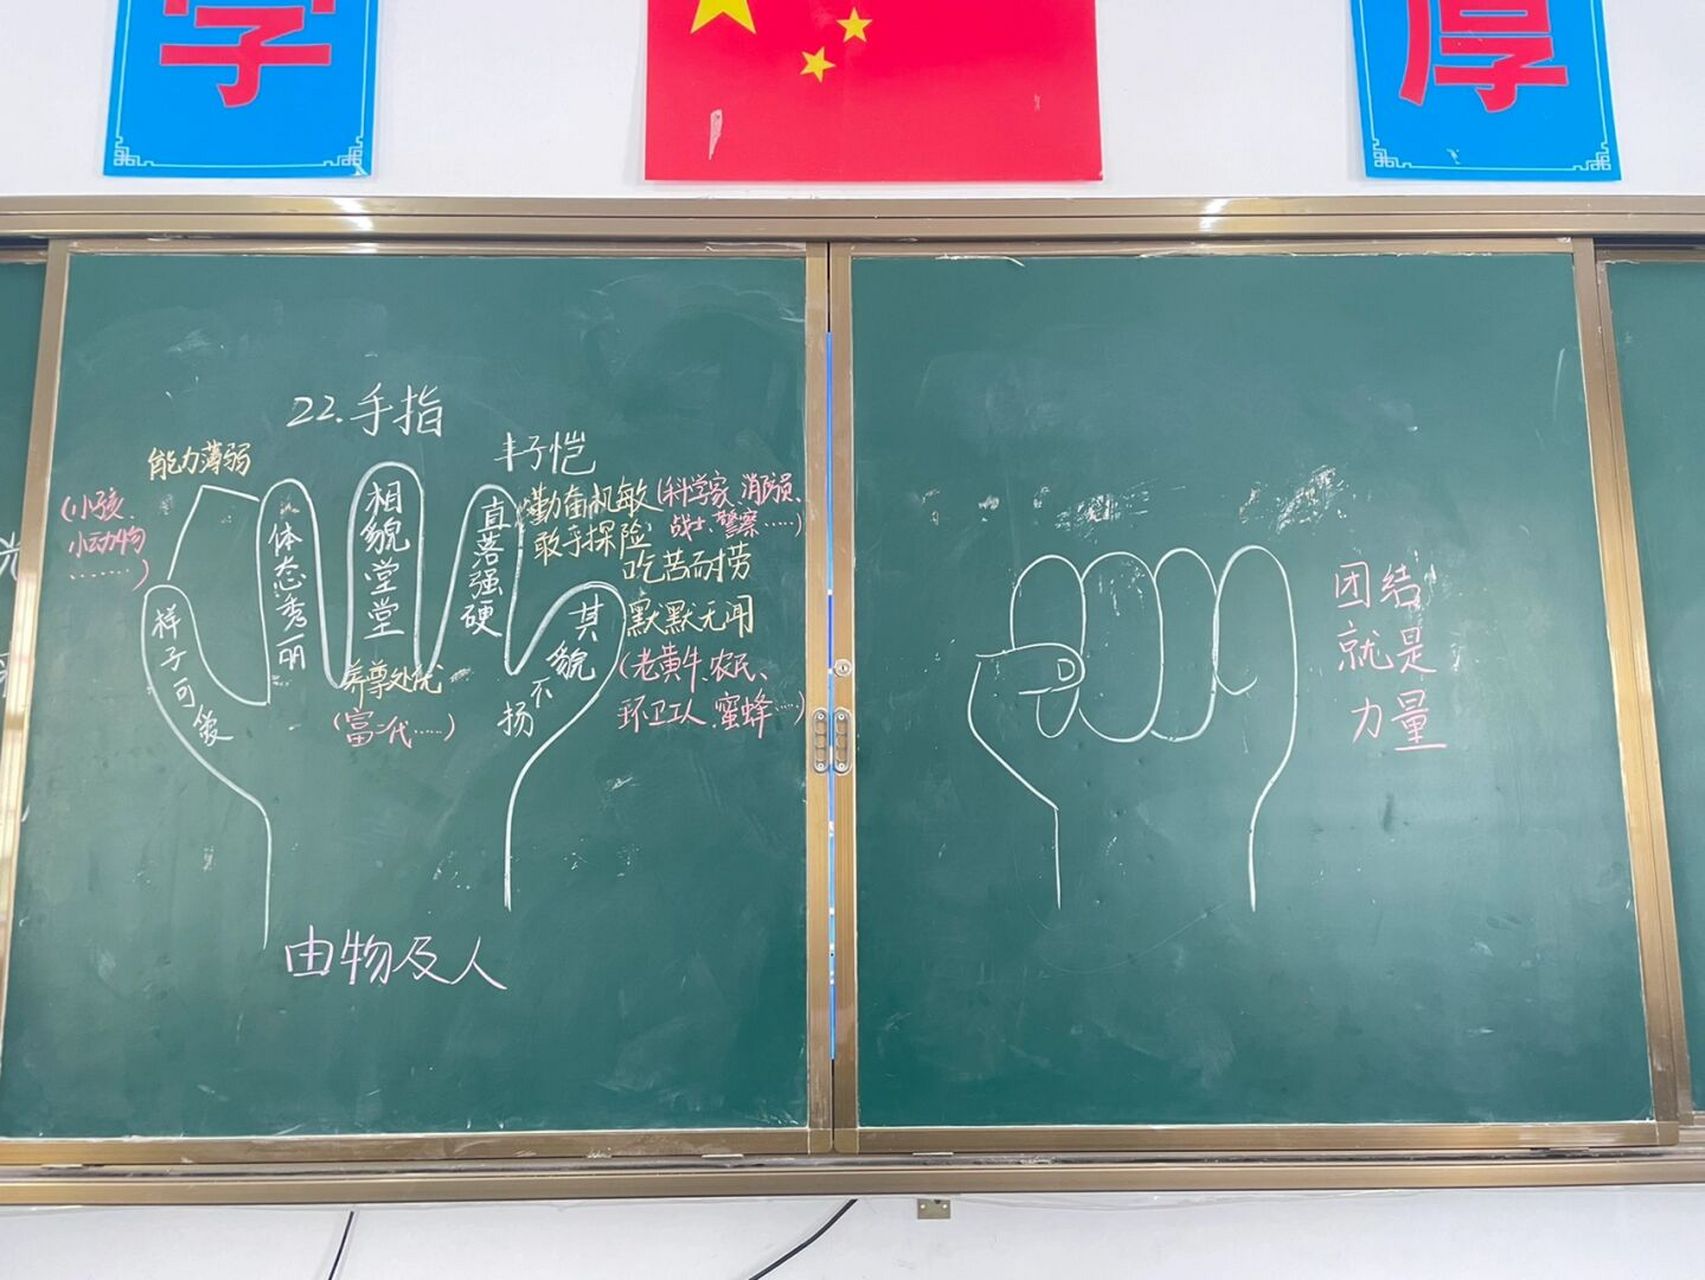 学
厚
22.手指
丰子恺
能力薄弱
(小孩、
小动物
……)
样子可爱
体态秀丽
相貌堂堂
养尊处优
(富二代……)
直落强硬
勤奋机敏(科学家、消防员、
敢于探险 战士、警察……)
其貌不扬
吃苦而耐劳
默默无闻
(老黄牛、农民、
环卫工人、蜜蜂……)
由物及人
团结
就是
力量